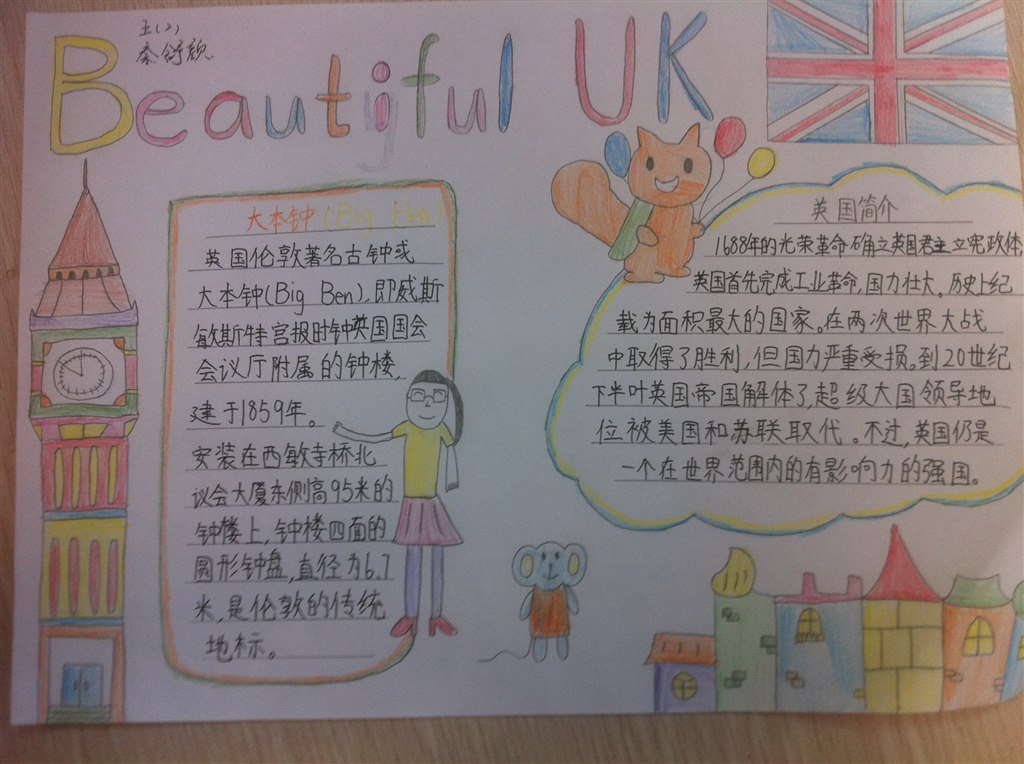 五(2)
秦舒颜
Beautiful UK
大本钟(Big Ben)
英国伦敦著名古钟或
大本钟(Big Ben),即威斯
敏斯特宫报时钟英国国会
会议厅附属的钟楼,
建于1859年。
安装在西敏寺桥北
议会大厦东侧高95米的
钟楼上,钟楼四面的
圆形钟盘,直径为6.7
米,是伦敦的传统
地标。
英国简介
1688年的光荣革命确立英国君主立宪政体
英国首先完成工业革命,国力壮大。历史上纪
载为面积最大的国家。在两次世界大战
中取得了胜利,但国力严重受损。到20世纪
下半叶英国帝国解体了,超级大国领导地
位被美国和苏联取代。不过,英国仍是
一个在世界范围内的有影响力的强国。